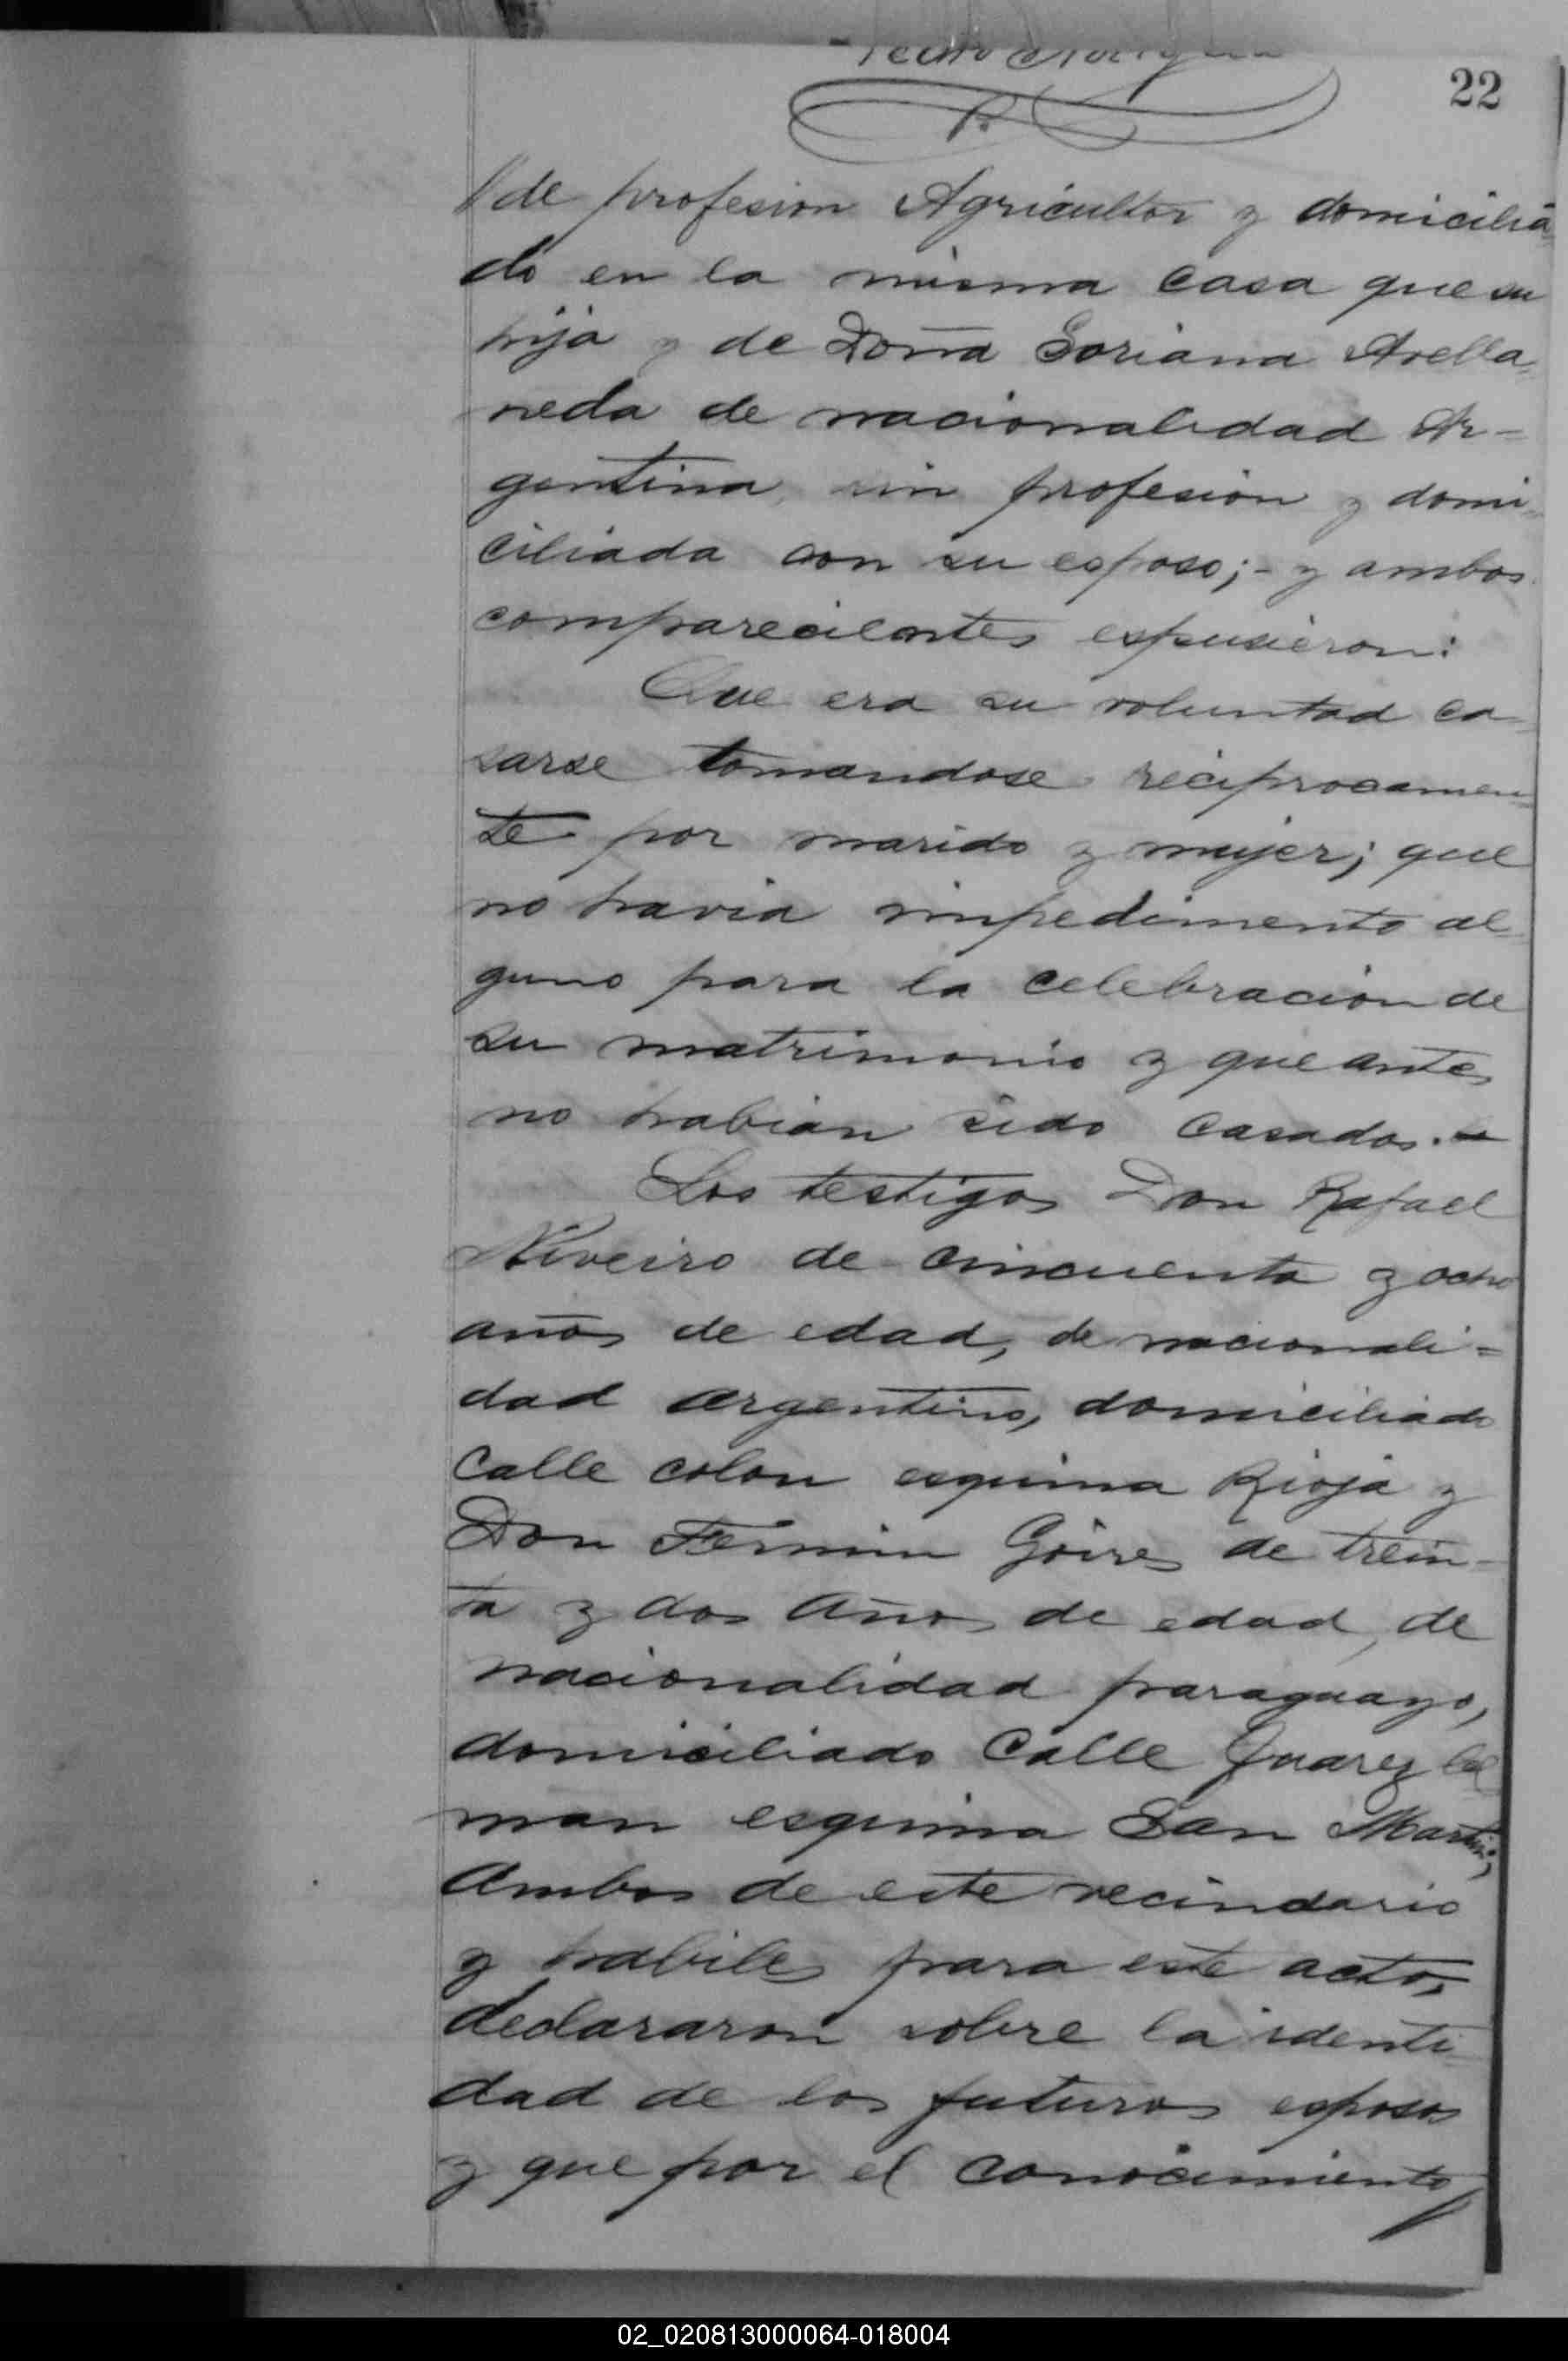 Pedro
22
//de profesion Agricultor y domicilia
do en la misma casa que su
hija y de Doña Soriana Avella=
neda de nacionalidad Ar-
gentina, sin profesion y domi=
ciliada con su esposo;- y ambos
comparecientes espusieron:
Que era su voluntad ca=
sarse tomandose reciprocamen=
te por marido y mujer; que
no havia impedimento al=
guno para la celebracion de
su matrimonio y que antes
no habian sido casados.-
Los testigos Don Rafael
Niveiro de cincuenta y ocho
años de edad, de nacionali=
dad argentino, domiciliado
Calle colon esquina Rioja y
Don Fermin Goires de trein-
ta y dos años de edad, de
nacionalidad paraguayo,
domiciliado Calle Juarez Cel
man esquina San Martin;
Ambos de este vecindario
y habiles para este acto,
declararon sobre la identi=
dad de los futuros esposos
y que por el conocimiento
02_020813000064-018004